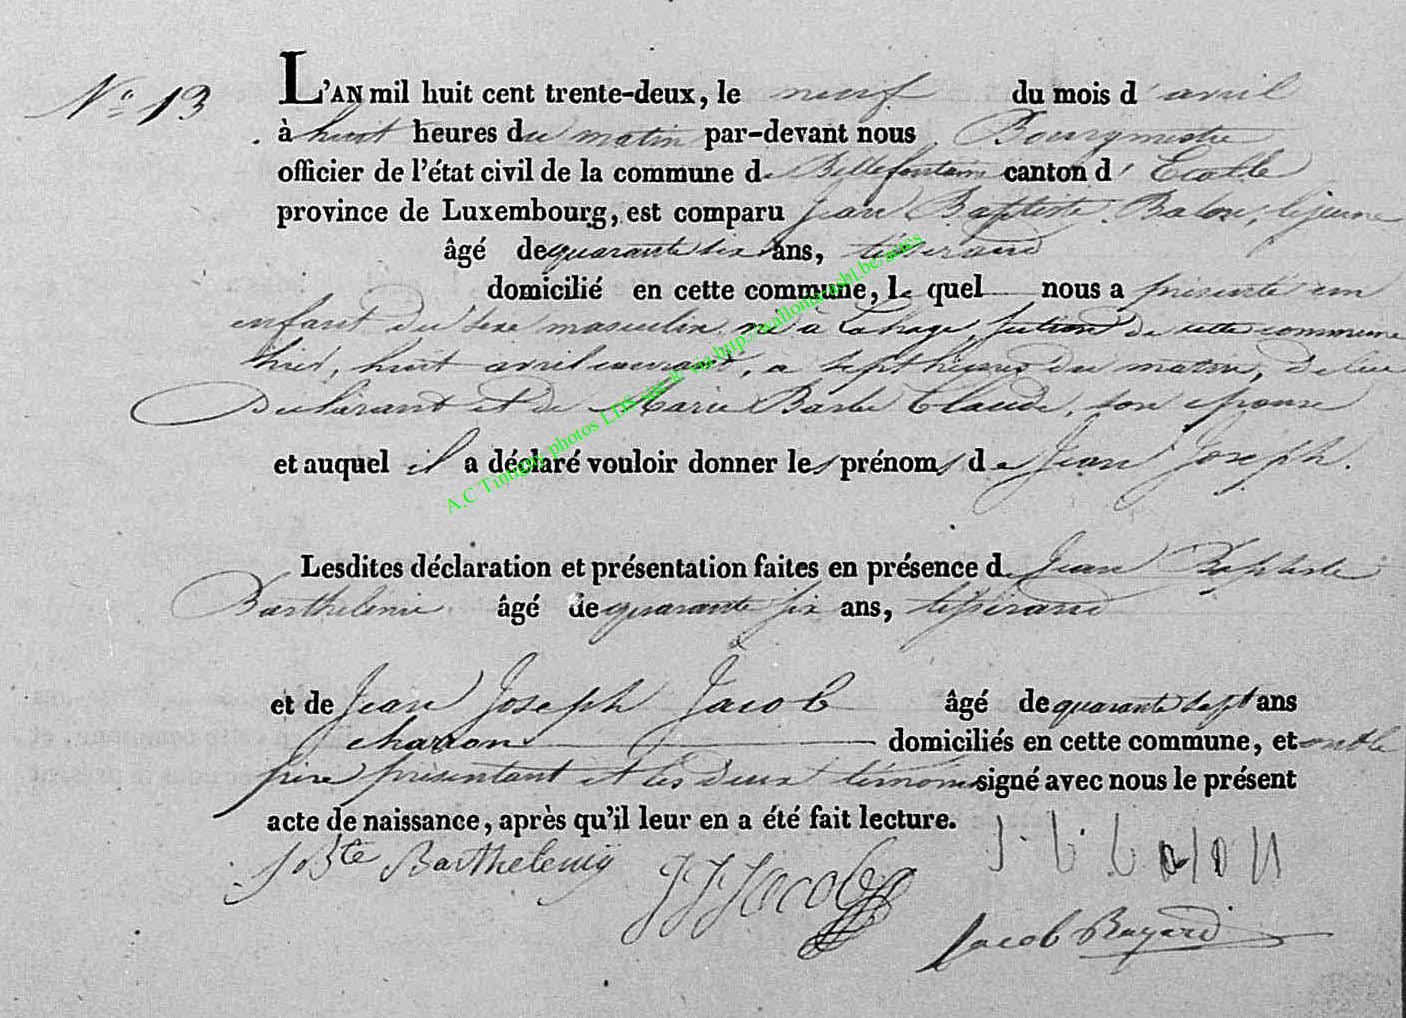 N.º 13
L'AN mil huit cent trente-deux, le neuf du mois d'avril
à huit heures du matin par-devant nous Bourgmestre
officier de l'état civil de la commune de Bellefontaine canton d'Etalle
province de Luxembourg, est comparu Jean Baptiste Balon, lejeune
âgé de quarante six ans, tisserand
domicilié en cette commune, le quel nous a présenté un
enfant du sexe masculin né à Lahage, section de cette commune
hier, huit avril courant, à sept heures du matin, de lui
Déclarant et de Marie Barbe Claude, son épouse
et auquel il a déclaré vouloir donner les prénoms de Jean Joseph.
Lesdites déclaration et présentation faites en présence de Jean Baptiste
Barthelemie âgé de quarante six ans, tisserand
et de Jean Joseph Jacob âgé de quarante sept ans
charron domiciliés en cette commune, et ont le
père présentant et les deux témoins signé avec nous le présent
acte de naissance, après qu'il leur en a été fait lecture.
J Bte Barthelemy J. J. Jacob J. b. balon
Jacob Bayard
A.C Tintigny, photos LDS site & via http://wallonia.asbl.be/actes